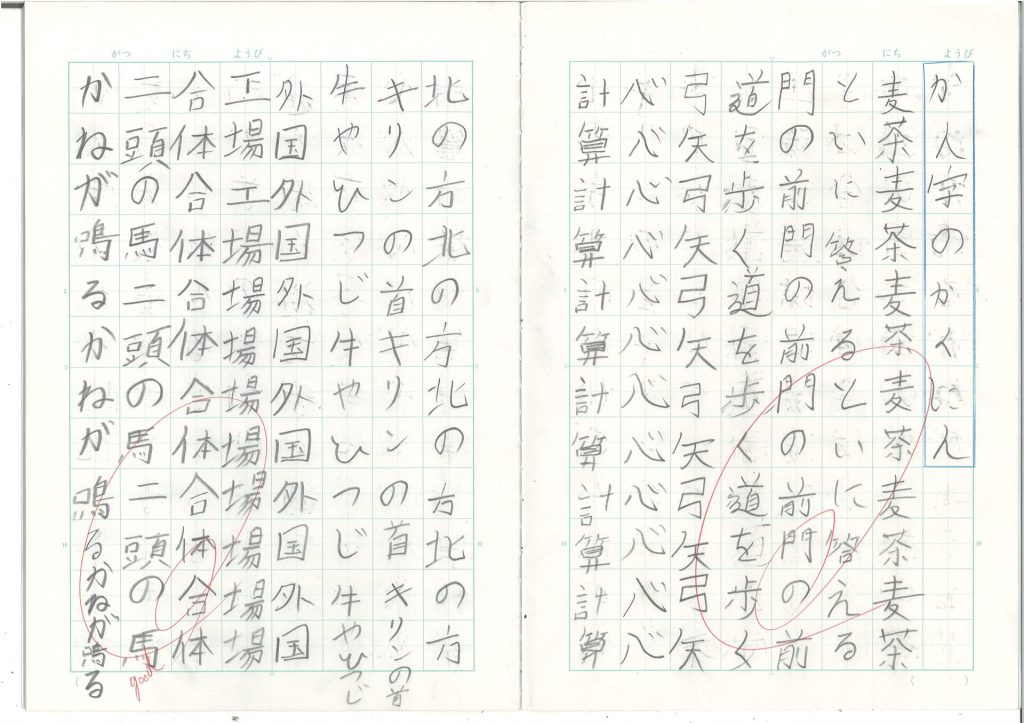 がつ にち ようび
かん字のかくにん
麦茶麦茶麦茶麦茶麦茶麦茶
といに答えるといに答える
門の前門の前門の前門の前
道を歩く道を歩く道を歩く
弓矢弓矢弓矢弓矢弓矢弓矢
心心心心心心心心心心心心
計算計算計算計算計算計算
がつ にち ようび
北の方北の方北の方北の方
キリンの首キリンの首キリンの首
牛やひつじ牛やひつじ牛やひつじ
外国外国外国外国外国外国
工場工場場場場場場場場場
合体合体合体合体合体合体
二頭の馬二頭の馬二頭の馬
かねが鳴るかねが鳴るかねが鳴る
good